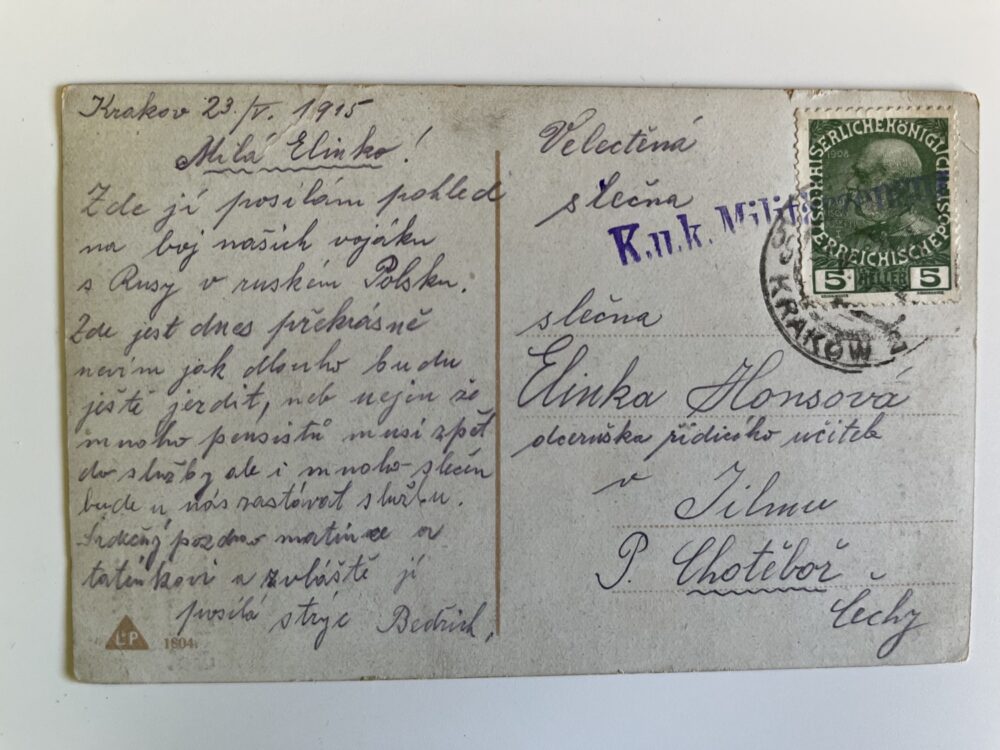 Krakov 23./V. 1915
Milá Elinko!
Zde jí posílám pohled
na boj našich vojáku
s Rusy v ruském Polsku.
Zde jest dnes překrásně
nevím jak dlouho budu
ještě jezdit, neb nejen že
mnoho pensistů musí zpět
do služby ale i mnoho slečen
bude u nás zastávat službu.
Srdečný pozdrav matince a
tatínkovi a zvláště jí
posílá strýc Bedřich,
L&P 1804.
Velectěná
slečna
K.u.k.
slečna
Elinka Honsová
dceruška řídícího učitele
v
Jilmu
P. Chotěboř
Čechy
KAISERLICHEKÖNIGLICHE
ÖSTERREICHISCHEPOST
1908
5 HELLER 5
KRAKÓW 2